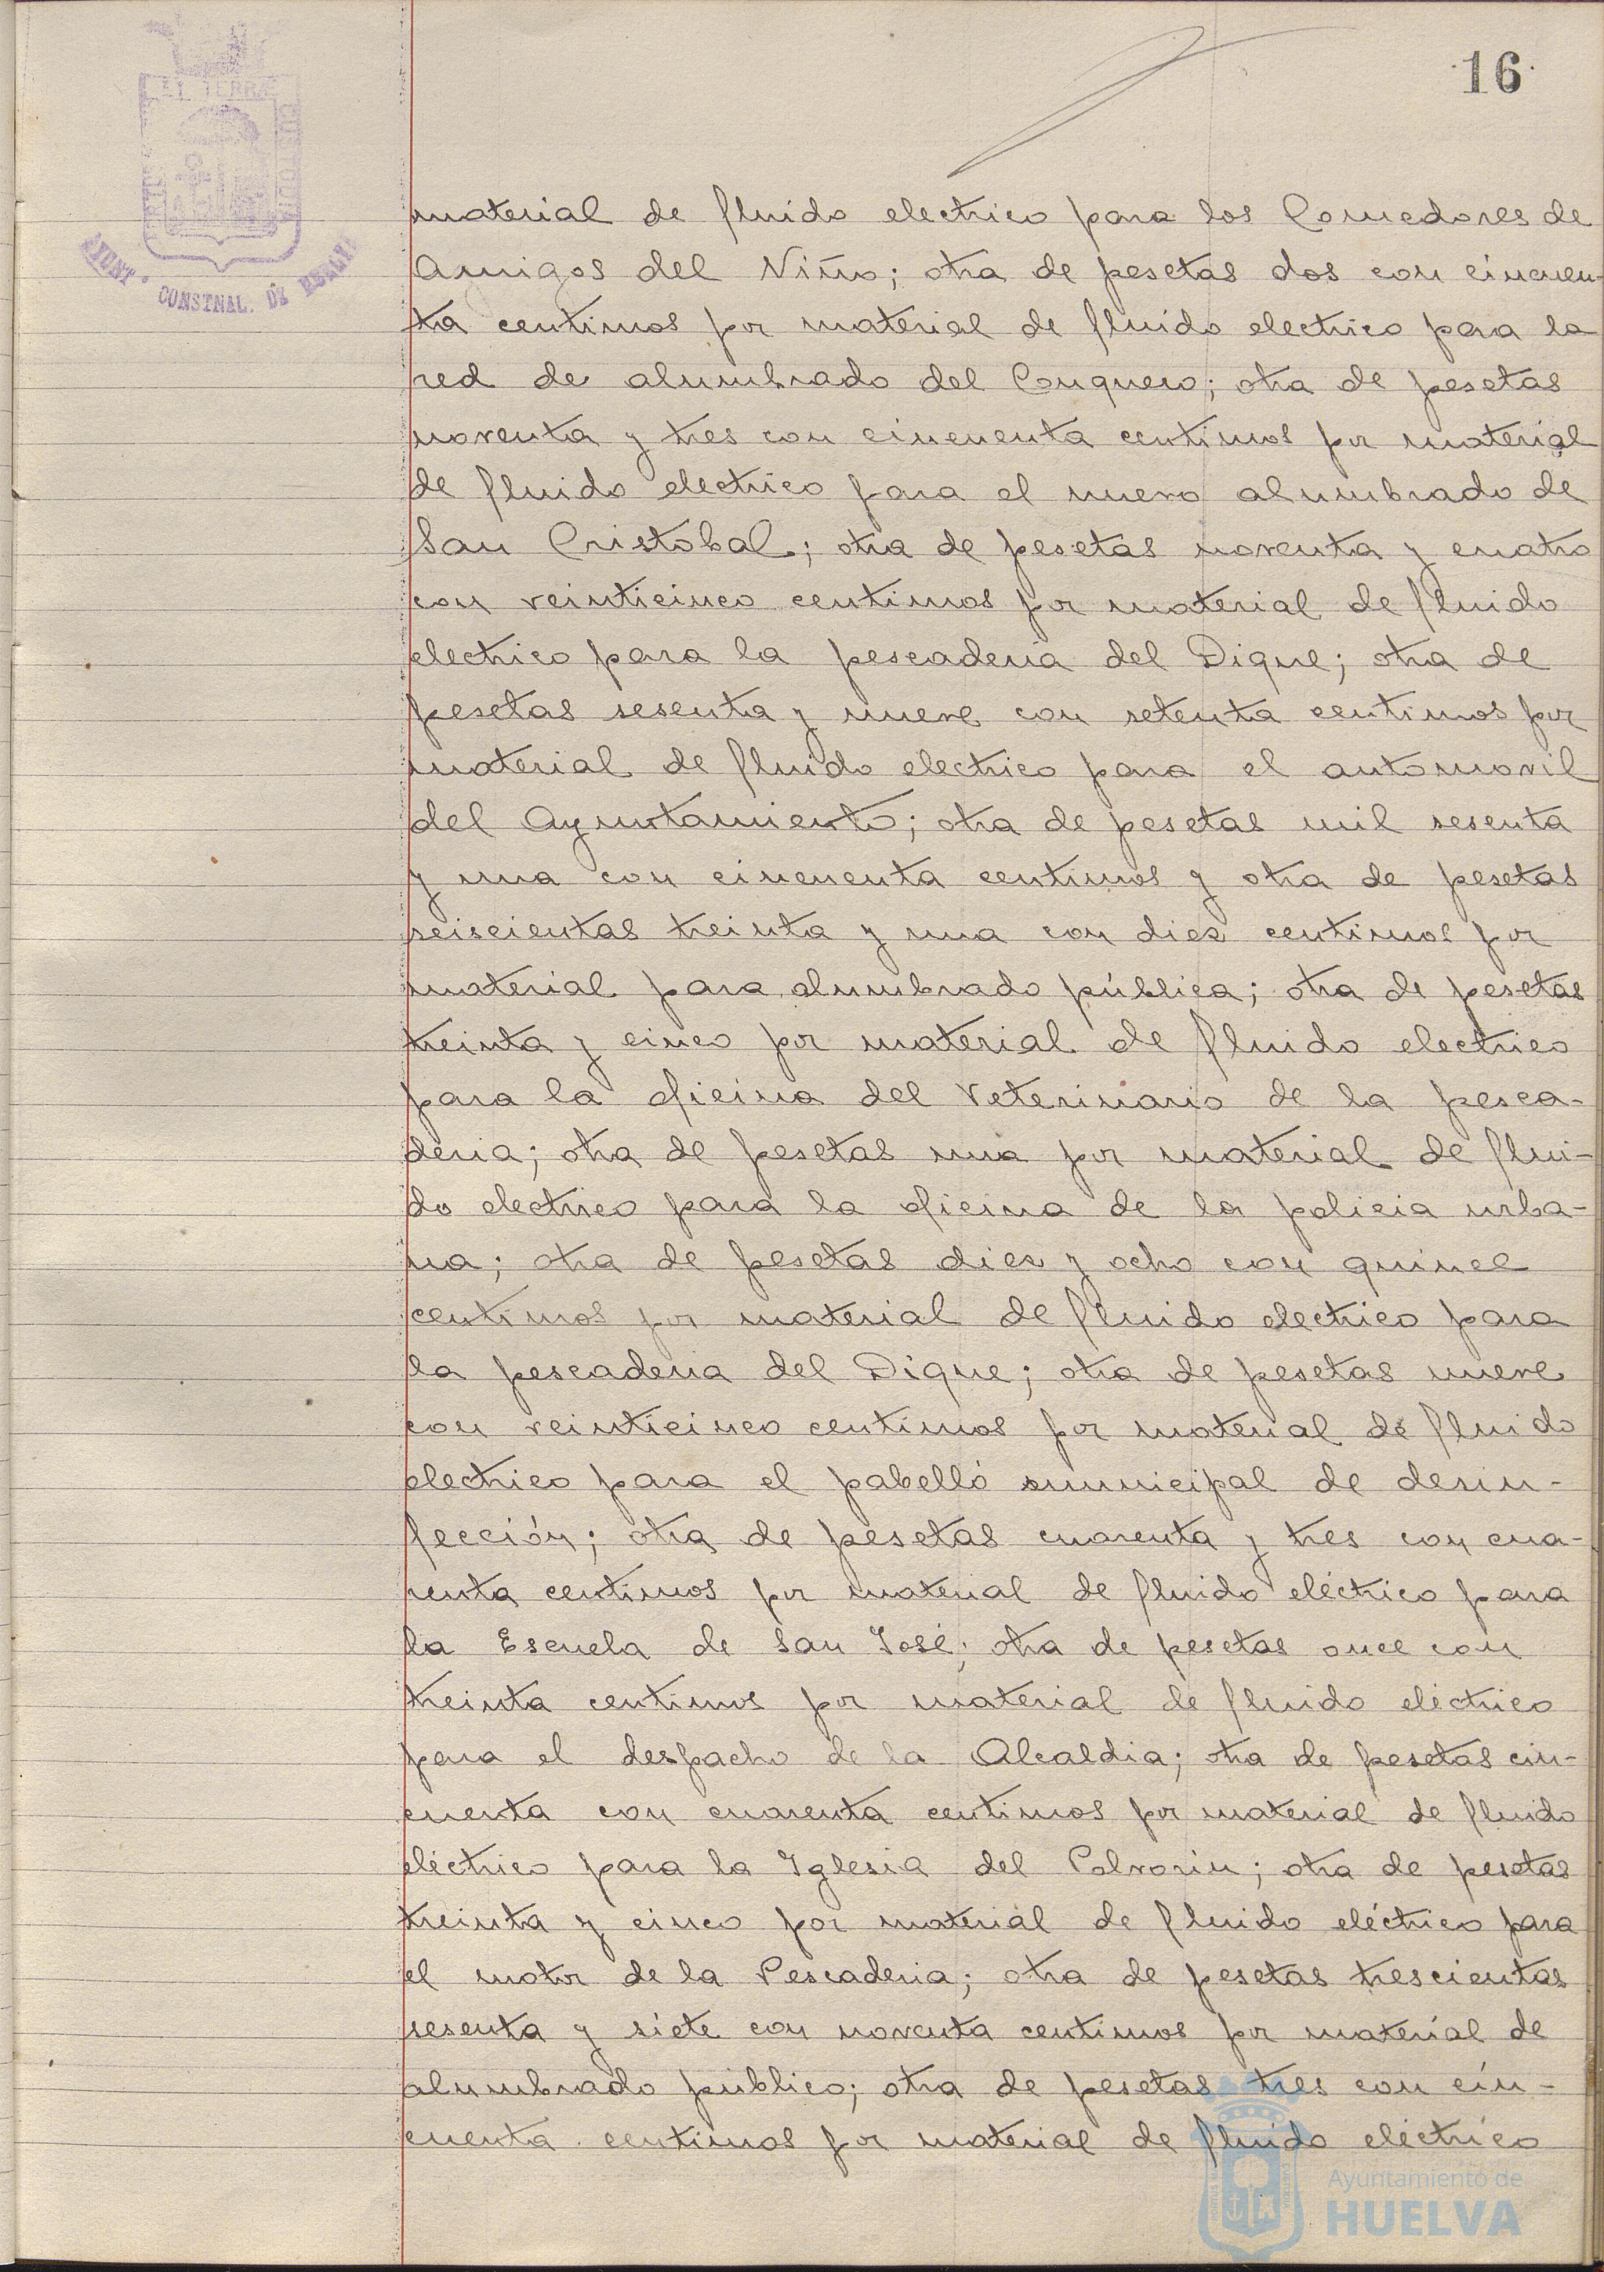 16
material de fluido electrico para los Comedores de
Amigos del Niño; otra de pesetas dos con cincuen-
ta centimos por material de fluido electrico para la
red de alumbrado del Conquero; otra de pesetas
noventa y tres con cincuenta centimos por material
de fluido electrico para el nuevo alumbrado de
San Cristobal; otra de pesetas noventa y cuatro
con veinticinco centimos por material de fluido
electrico para la pescaderia del Dique; otra de
pesetas sesenta y nueve con setenta centimos por
material de fluido electrico para el automovil
del Ayuntamiento; otra de pesetas mil sesenta
y una con cincuenta centimos y otra de pesetas
seiscientas treinta y una con diez centimos por
material para alumbrado pública; otra de pesetas
treinta y cinco por material de fluido electrico
para la oficina del Veterinario de la pesca-
deria; otra de pesetas una por material de flui-
do electrico para la oficina de la policia urba-
na; otra de pesetas diez y ocho con quince
centimos por material de fluido electrico para
la pescaderia del Dique; otra de pesetas nueve
con veinticinco centimos por material de fluido
electrico para el pabelló municipal de desin-
fección; otra de pesetas cuarenta y tres con cua-
renta centimos por material de fluido eléctrico para
la Escuela de San José; otra de pesetas once con
treinta centimos por material de fluido eléctrico
para el despacho de la Alcaldia; otra de pesetas cin-
cuenta con cuarenta centimos por material de fluido
eléctrico para la Iglesia del Polvorin; otra de pesetas
treinta y cinco por material de fluido eléctrico para
el motor de la Pescaderia; otra de pesetas trescientas
sesenta y siete con noventa centimos por material de
alumbrado público; otra de pesetas tres con cin-
cuenta centimos por material de fluido eléctrico
CONSTNAL. DE
Ayuntamiento de
HUELVA